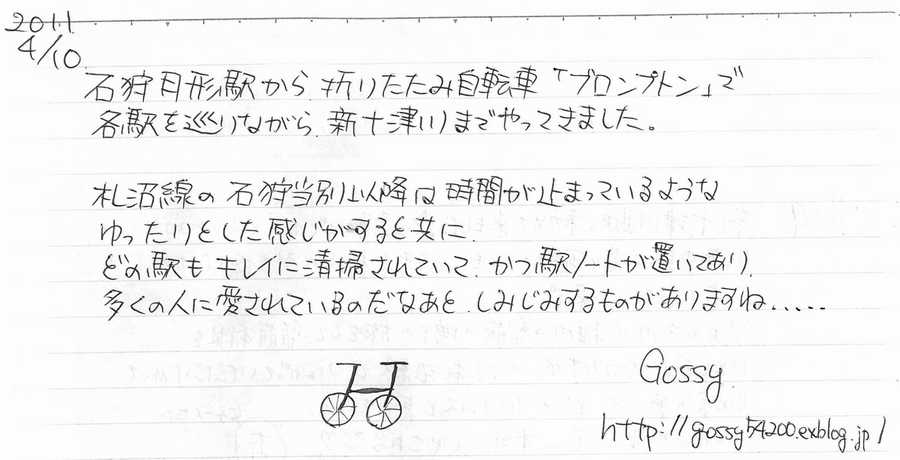 2011.
4/10.
石狩月形駅から、折りたたみ自転車「ブロンプトン」で
各駅を巡りながら、新十津川までやってきました。
札沼線の石狩当別以降は時間が止まっているような
ゆったりとした感じがすると共に、
どの駅もキレイに清掃されていて、かつ駅ノートが置いてあり、
多くの人に愛されているのだなあと、しみじみするものがありますね.....
Gossy.
http://gossy54200.exblog.jp/